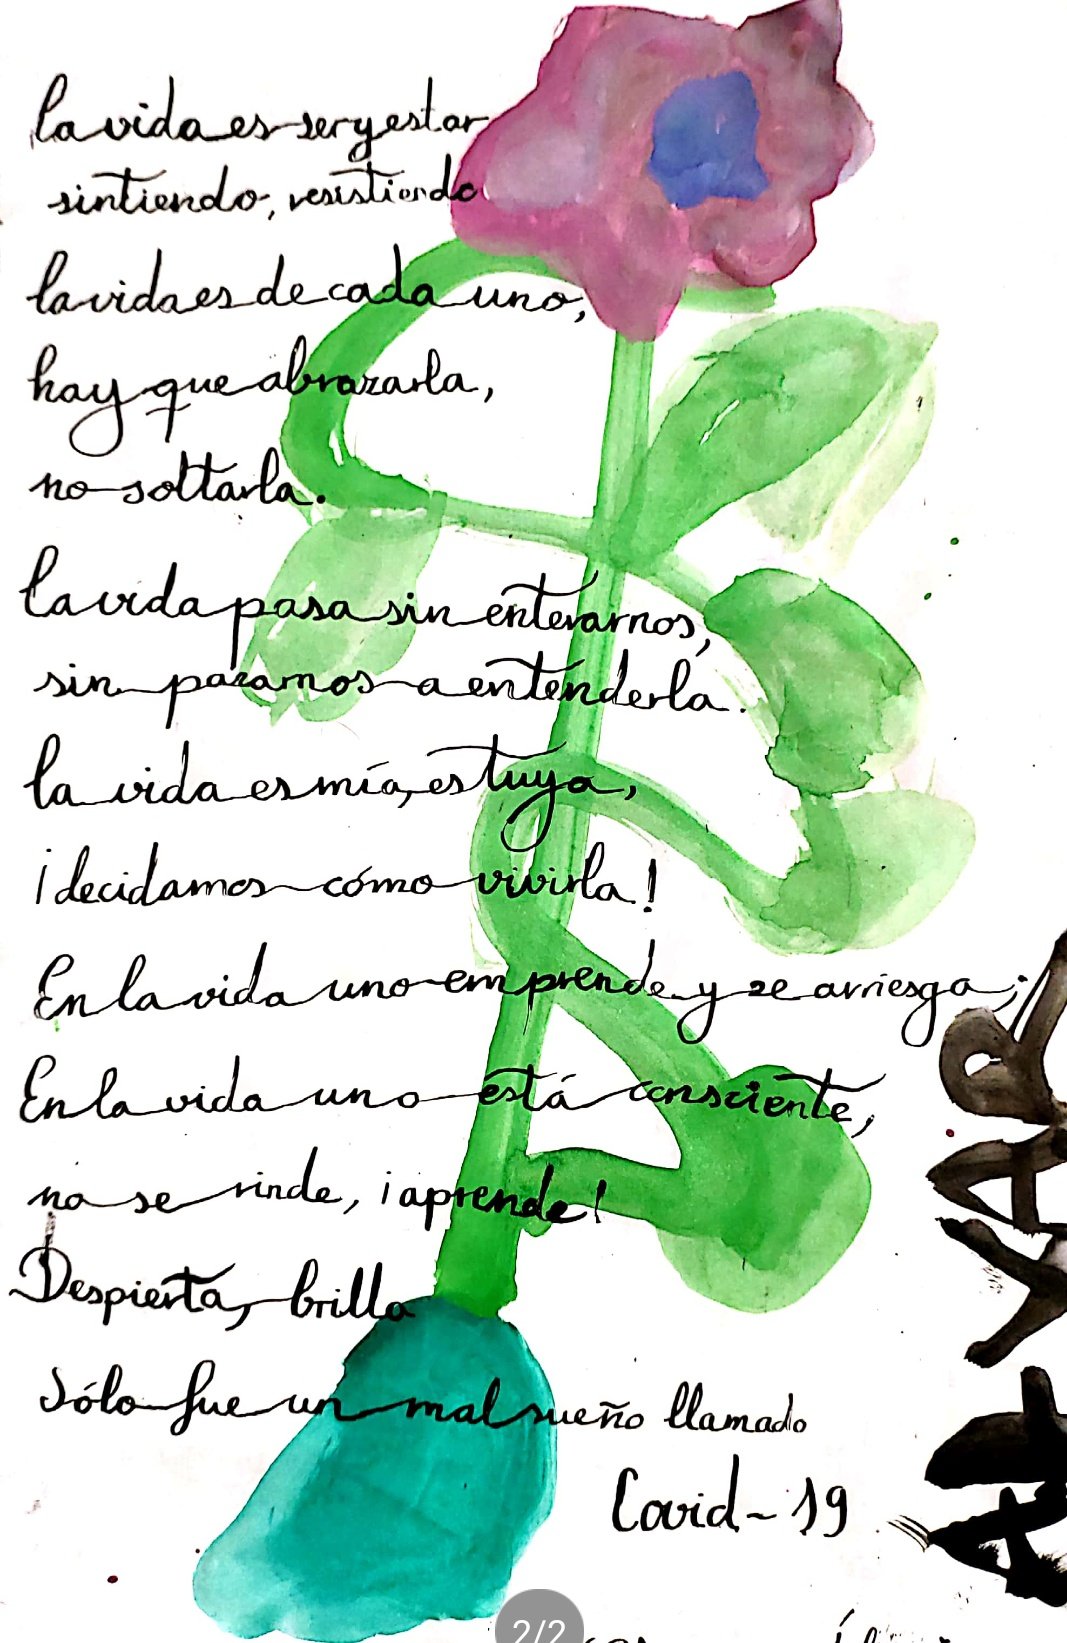 la vida es ser y estar
sintiendo, resistiendo
la vida es de cada uno,
hay que abrazarla,
no soltarla.
la vida pasa sin enterarnos,
sin pararnos a entenderla.
la vida es mía, es tuya,
¡decidamos cómo vivirla!
En la vida uno emprende y se arriesga;
En la vida uno está consciente,
no se rinde, ¡aprende!
Despierta, brilla
Sólo fue un mal sueño llamado
Covid-19
2/2